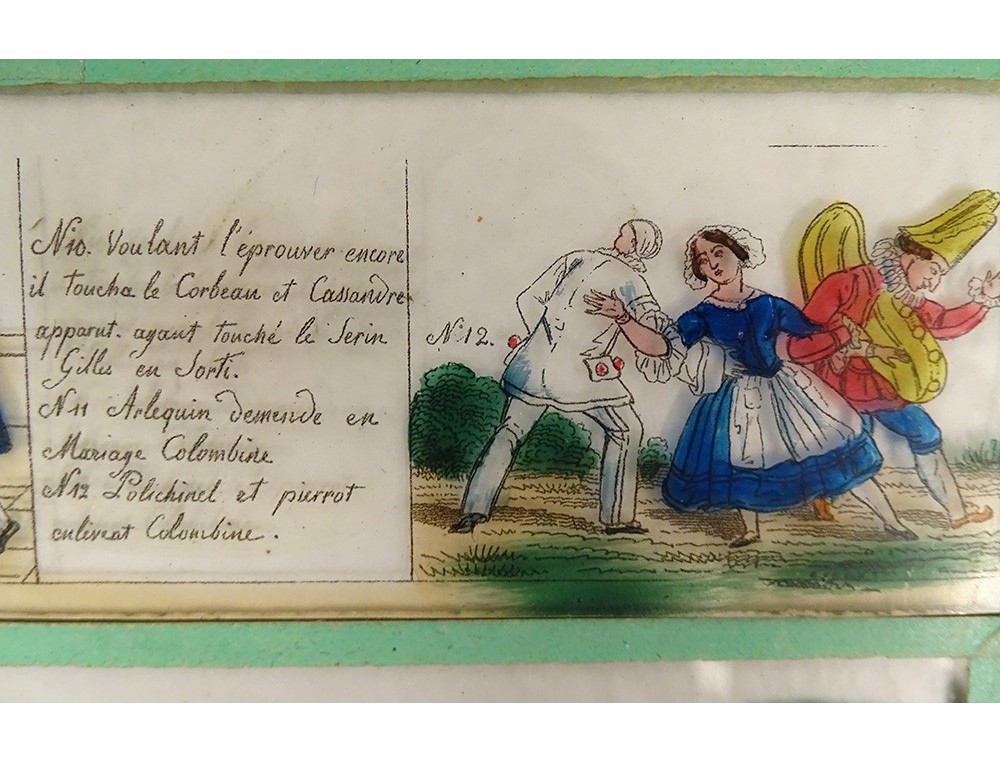 N10. Voulant l'éprouver encore
il toucha le Corbeau et Cassandre
apparut. ayant touché le Serin
Gilles en Sorti.
N11 Arlequin demende en
Mariage Colombine
N12 Polichinel et pierrot
enlevent Colombine.
N.12.